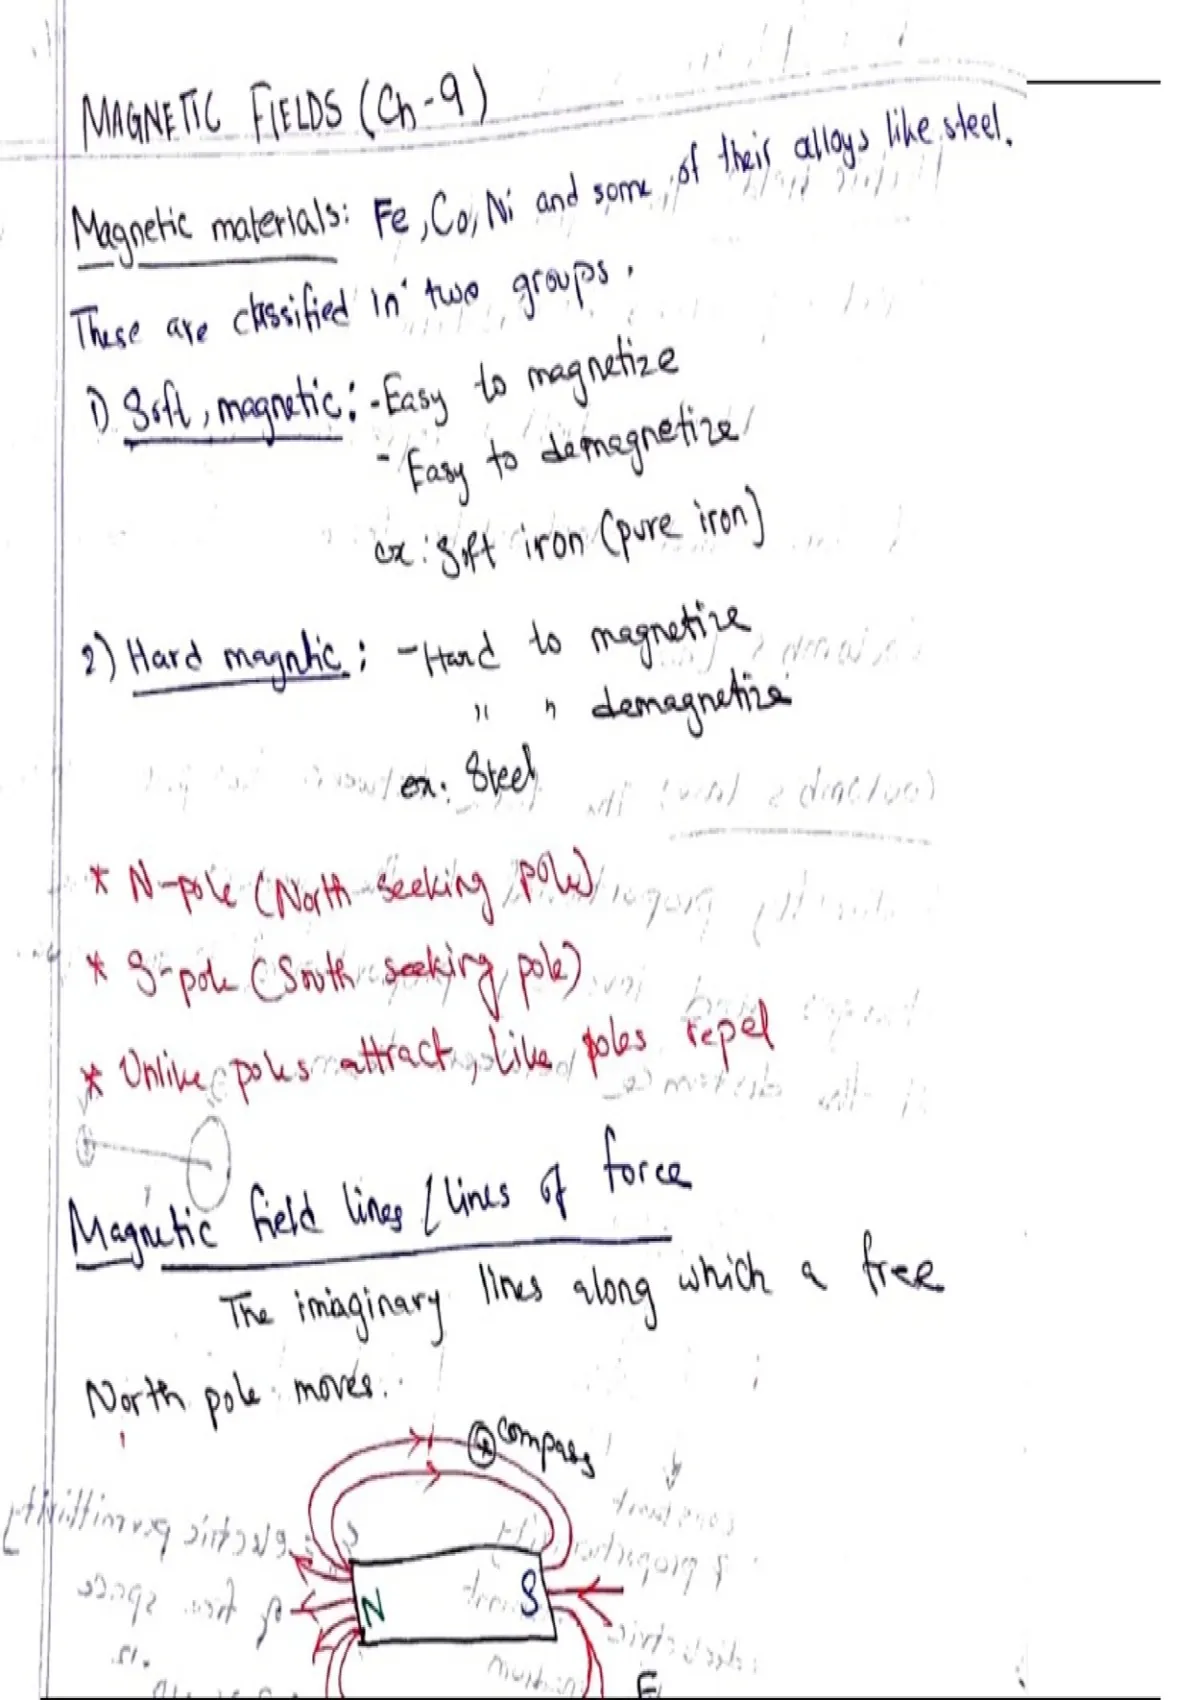 MAGNETIC FIELDS (Ch-9)
Magnetic materials: Fe, Co, Ni and some of their alloys like steel.
These are classified in two groups.
1) Soft, magnetic: - Easy to magnetize
- Easy to demagnetize
ex: Soft iron (pure iron)
2) Hard magntic: - Hard to magnetize
" " demagnetize
ex: Steel
* N-pole (North seeking pole)
* S-pole (South seeking pole)
* Unlike poles attract, Like poles repel
Magnetic field lines / lines of force
The imaginary lines along which a free
North pole moves.
compass
N S